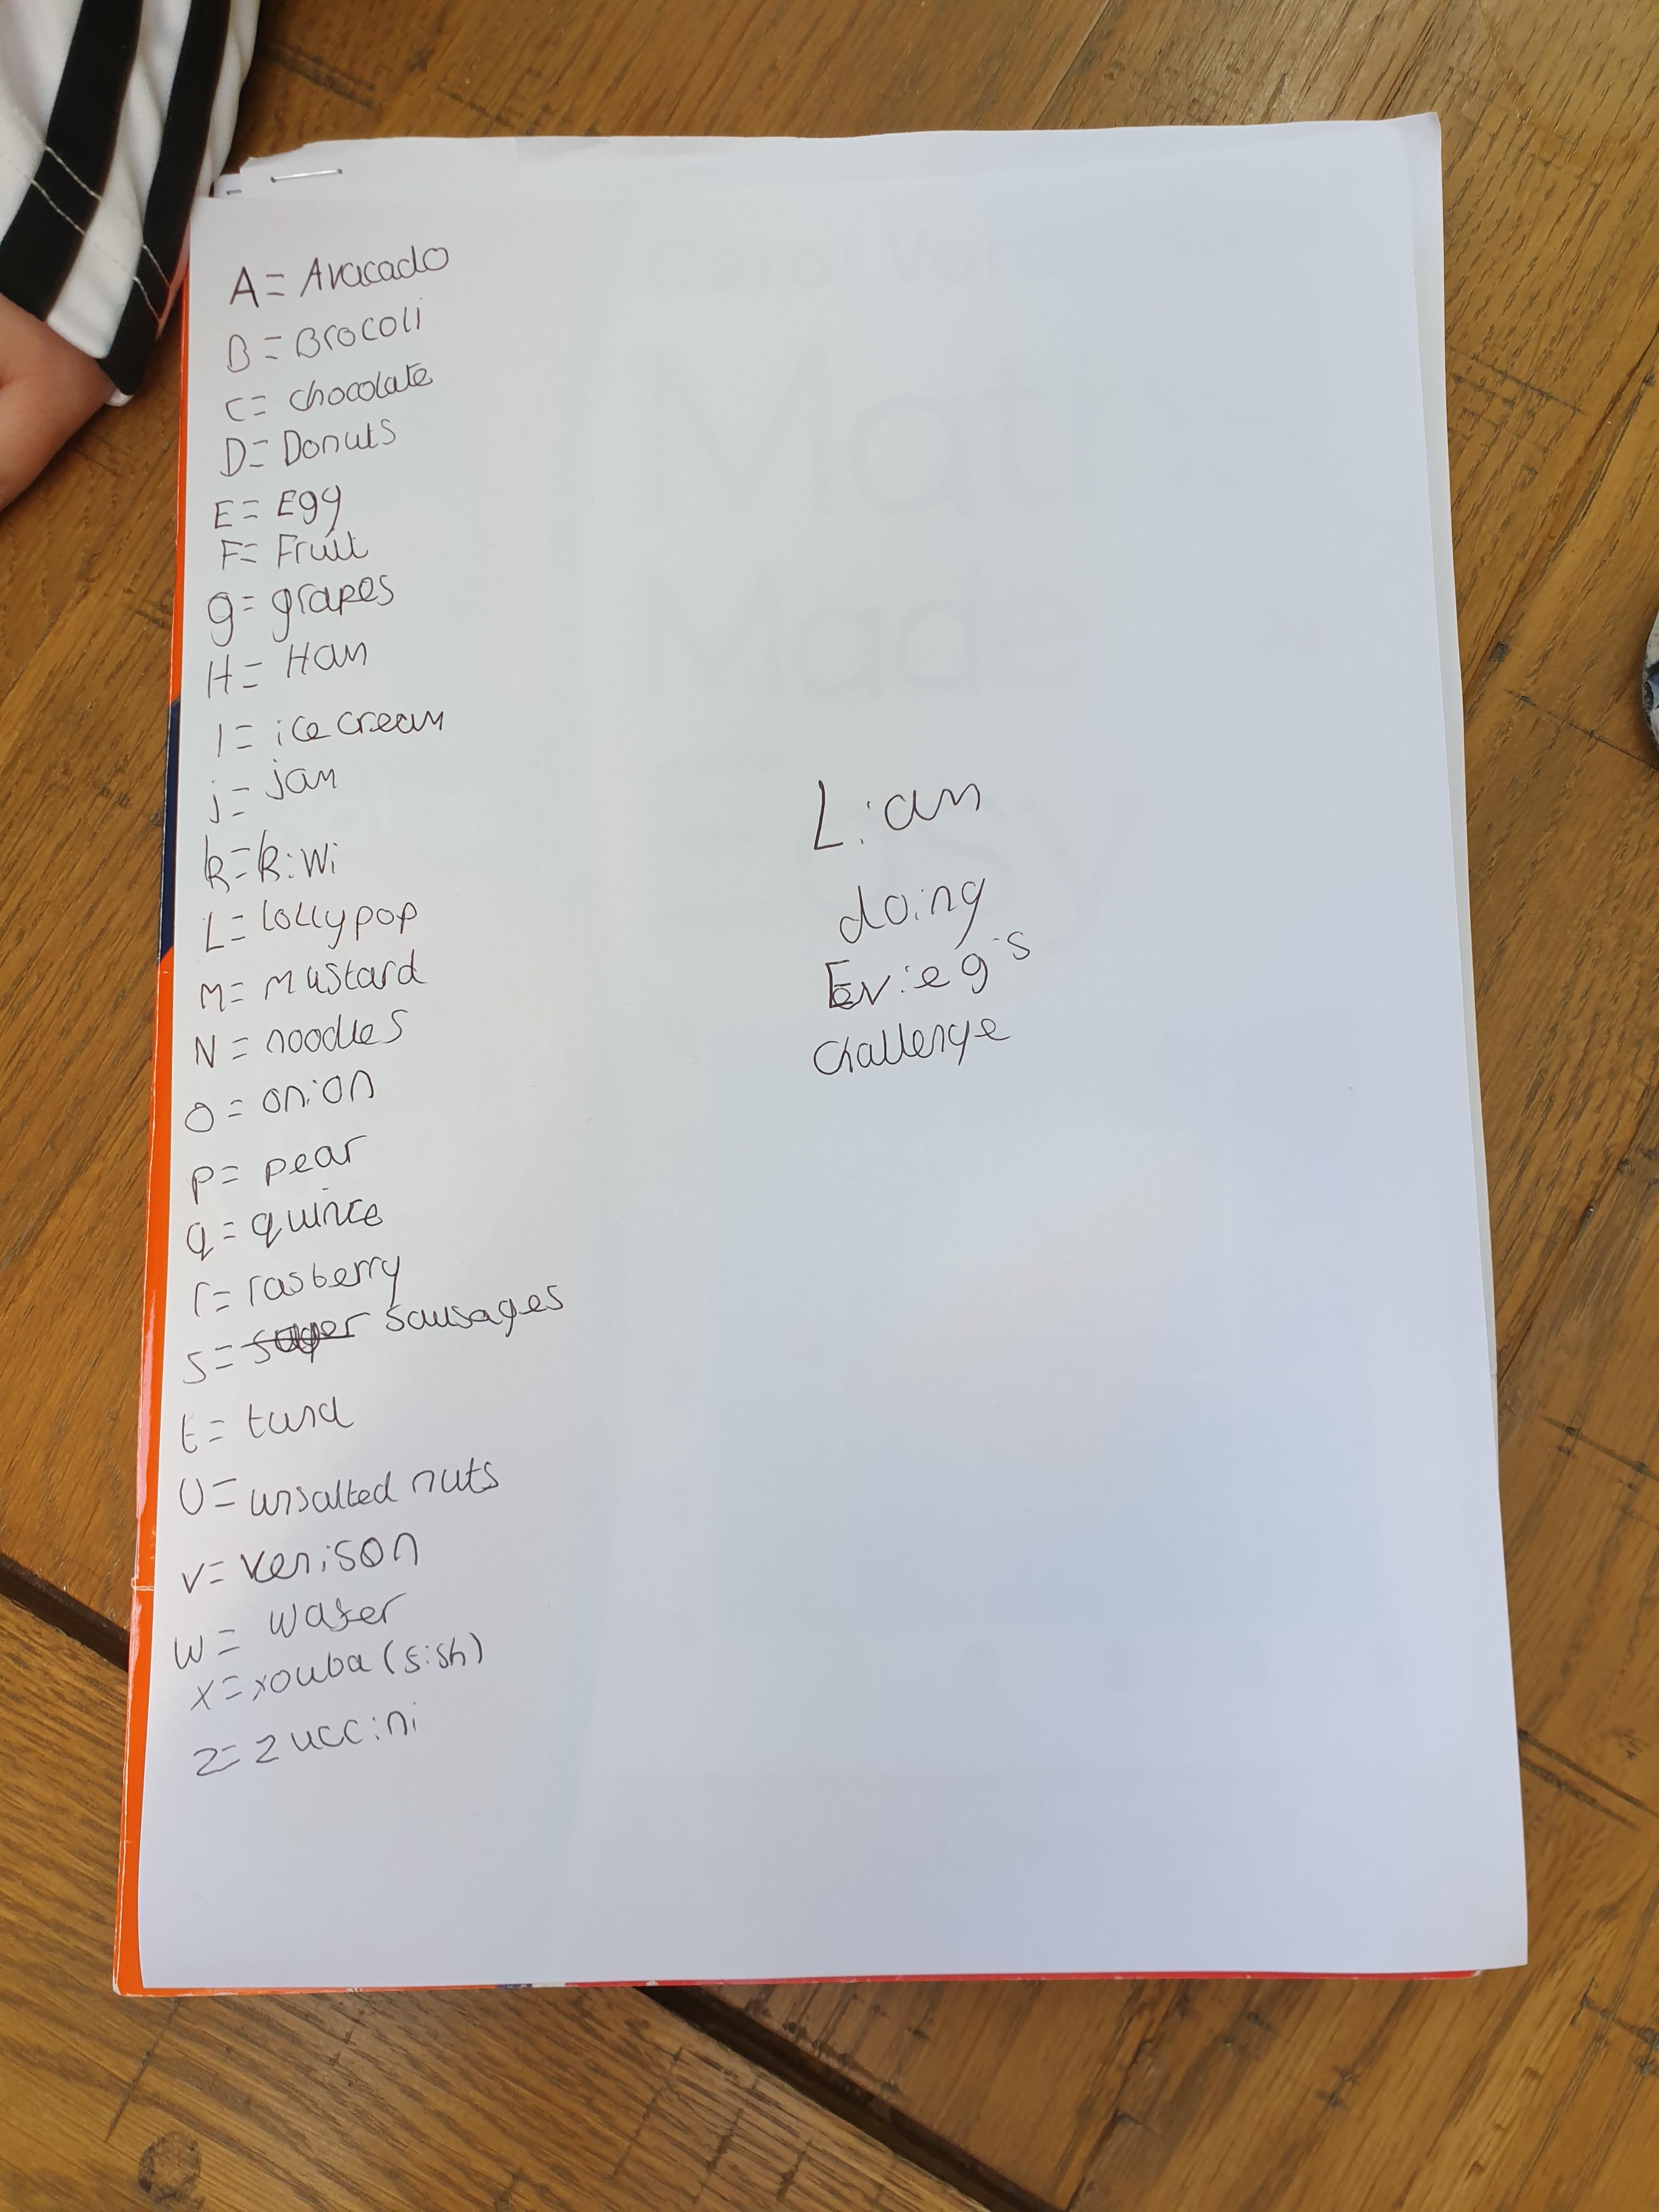 A= Avacado
B= Brocoli
C= chocolate
D= Donuts
E= Egg
F= Fruit
g= grapes
H= Ham
I= ice cream
j= jam
k= kiwi
L= lollypop
M= mustard
N= noodles
O= onion
p= pear
q= quince
r= rasberry
s= sausages
t= tuna
U= unsalted nuts
v= venison
w= water
x= xouba (fish)
z= zuccini
Liam
doing
Evie g's
challenge
Mat
Made
Easy